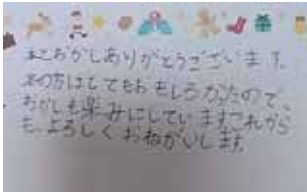 おかしありがとうございます。
の方はとてもおもしろかたので、
おかしも楽みにしていますこれから
も、よろしくおねがいします